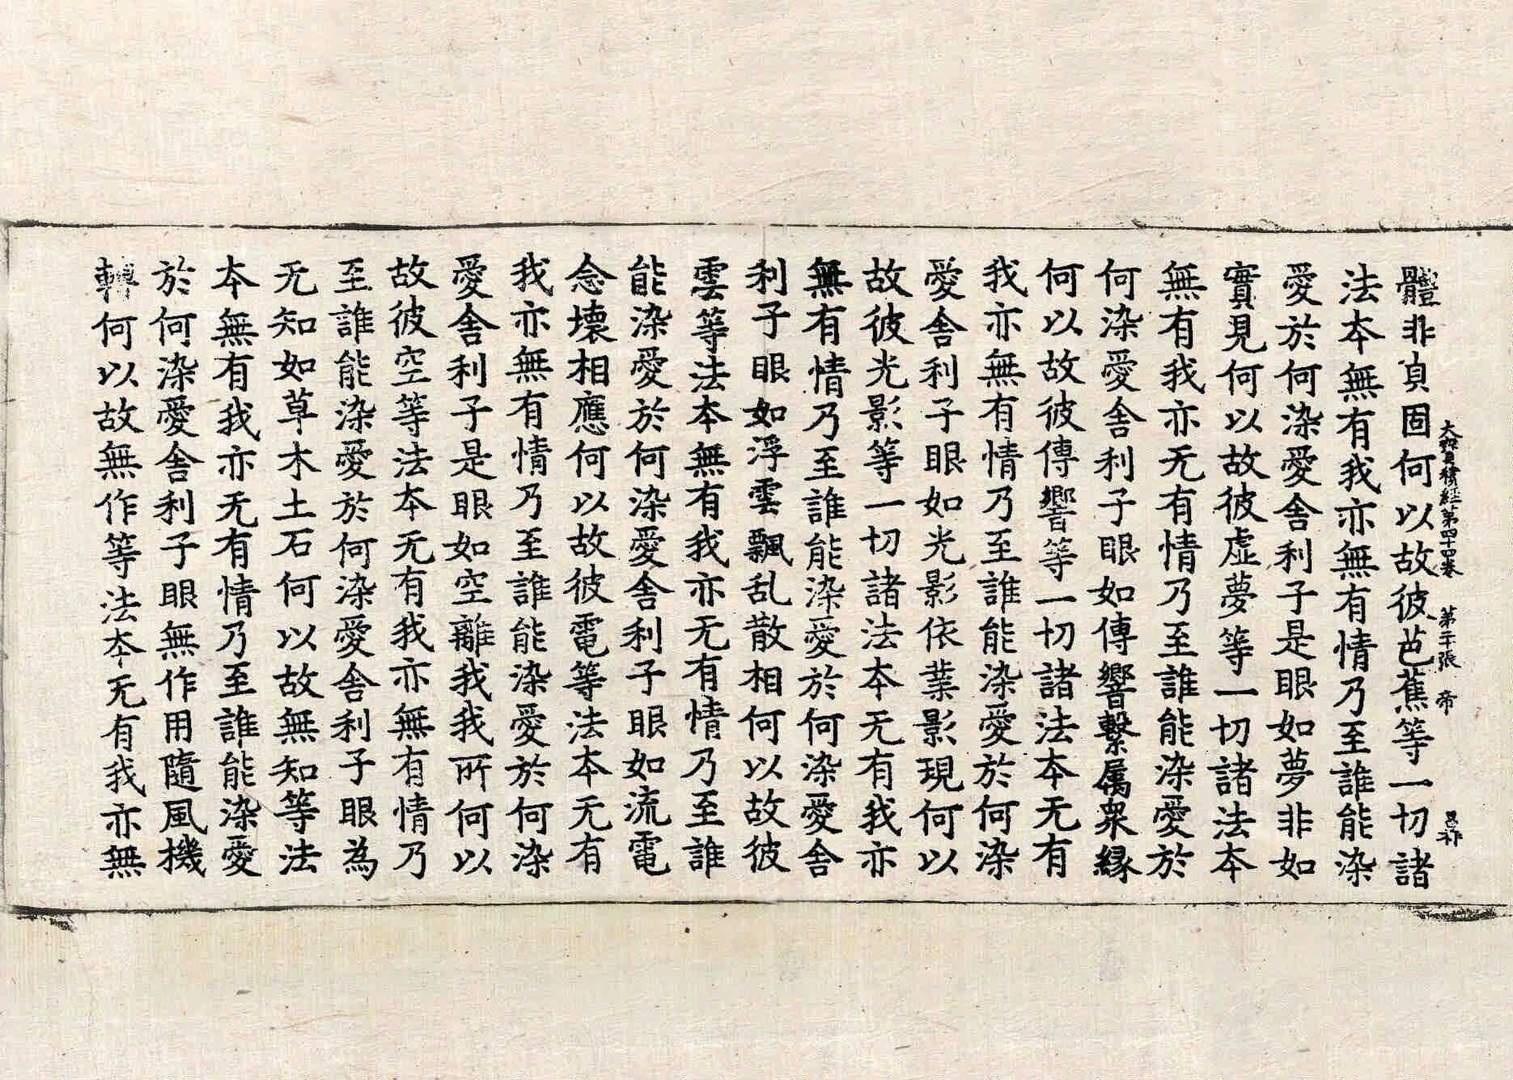 大寶積經第四十四卷 第二十張 帝
體非貞固何以故彼芭蕉等一切諸
法本無有我亦無有情乃至誰能染
愛於何染愛舍利子是眼如夢非如
實見何以故彼虛夢等一切諸法本
無有我亦无有情乃至誰能染愛於
何染愛舍利子眼如傳響繫属衆緣
何以故彼傳響等一切諸法本无有
我亦無有情乃至誰能染愛於何染
愛舍利子眼如光影依葉影現何以
故彼光影等一切諸法本无有我亦
無有情乃至誰能染愛於何染愛舍
利子眼如浮雲飄乱散相何以故彼
雲等法本無有我亦无有情乃至誰
能染愛於何染愛舍利子眼如流電
念壞相應何以故彼電等法本无有
我亦無有情乃至誰能染愛於何染
愛舍利子是眼如空離我我所何以
故彼空等法本无有我亦無有情乃
至誰能染愛於何染愛舍利子眼為
无知如草木土石何以故無知等法
本無有我亦无有情乃至誰能染愛
於何染愛舍利子眼無作用隨風機
轉何以故無作等法本无有我亦無